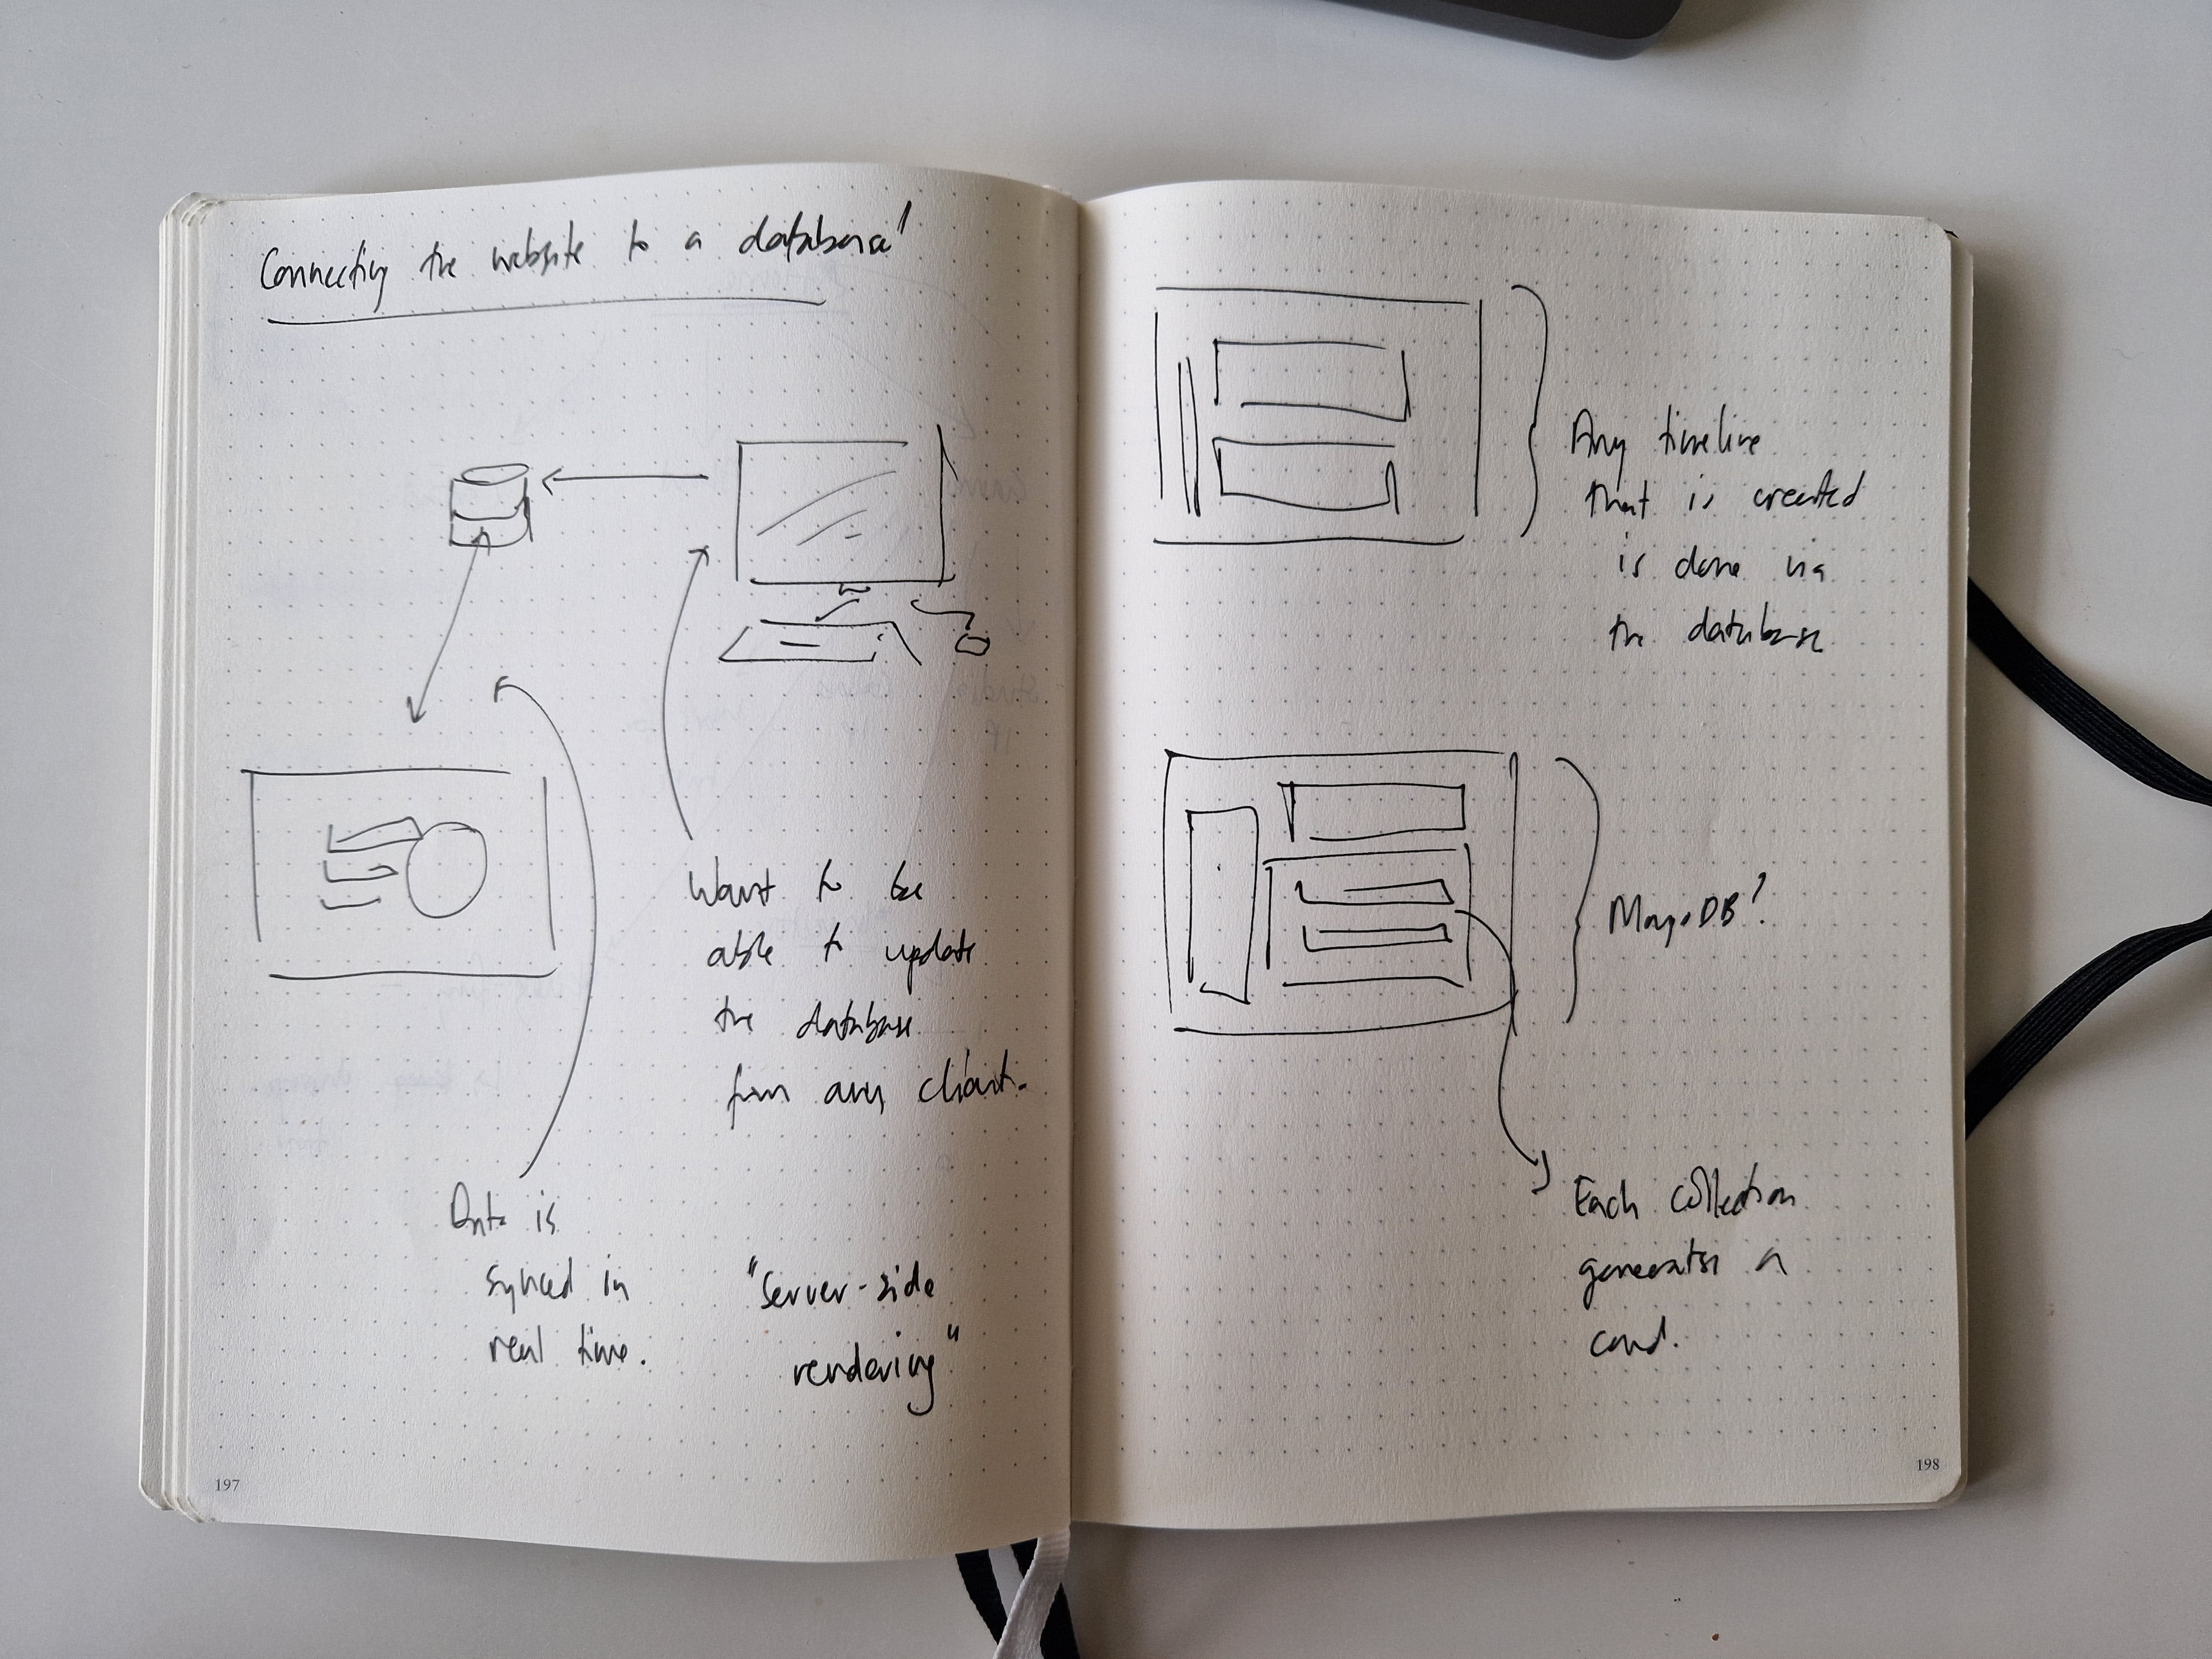 Connecting the website to a database!
Want to be
able to update
the database
from any client.
Data is
synced in
real time.
"Server-side
rendering"
197
Any timeline
that is created
is done via
the database
MongoDB?
Each collection
generates a
card.
198